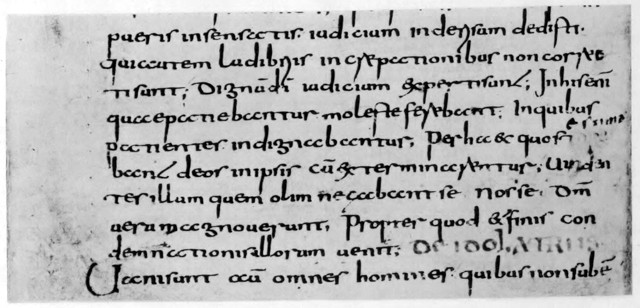 pueris insensatis. iudicium inderisum dedisti.
qui autem ludibriis increpationibus non correc
ti sunt; Dignū dī iudicium experti sunt; In his enī
quae patiebantur moleste ferebant. In quibus
patientes indignabantur; Per haec & quos essima
bant deos in ipsis cū exterminarentur; Uiden
tes illum quem olim negabant se nosse. Dm̄
uerum agnouerunt; Propter quod & finis con
demnationis illorum uenit; DE IDOLATRIIS
Uani sunt omnes homines quibus non subē